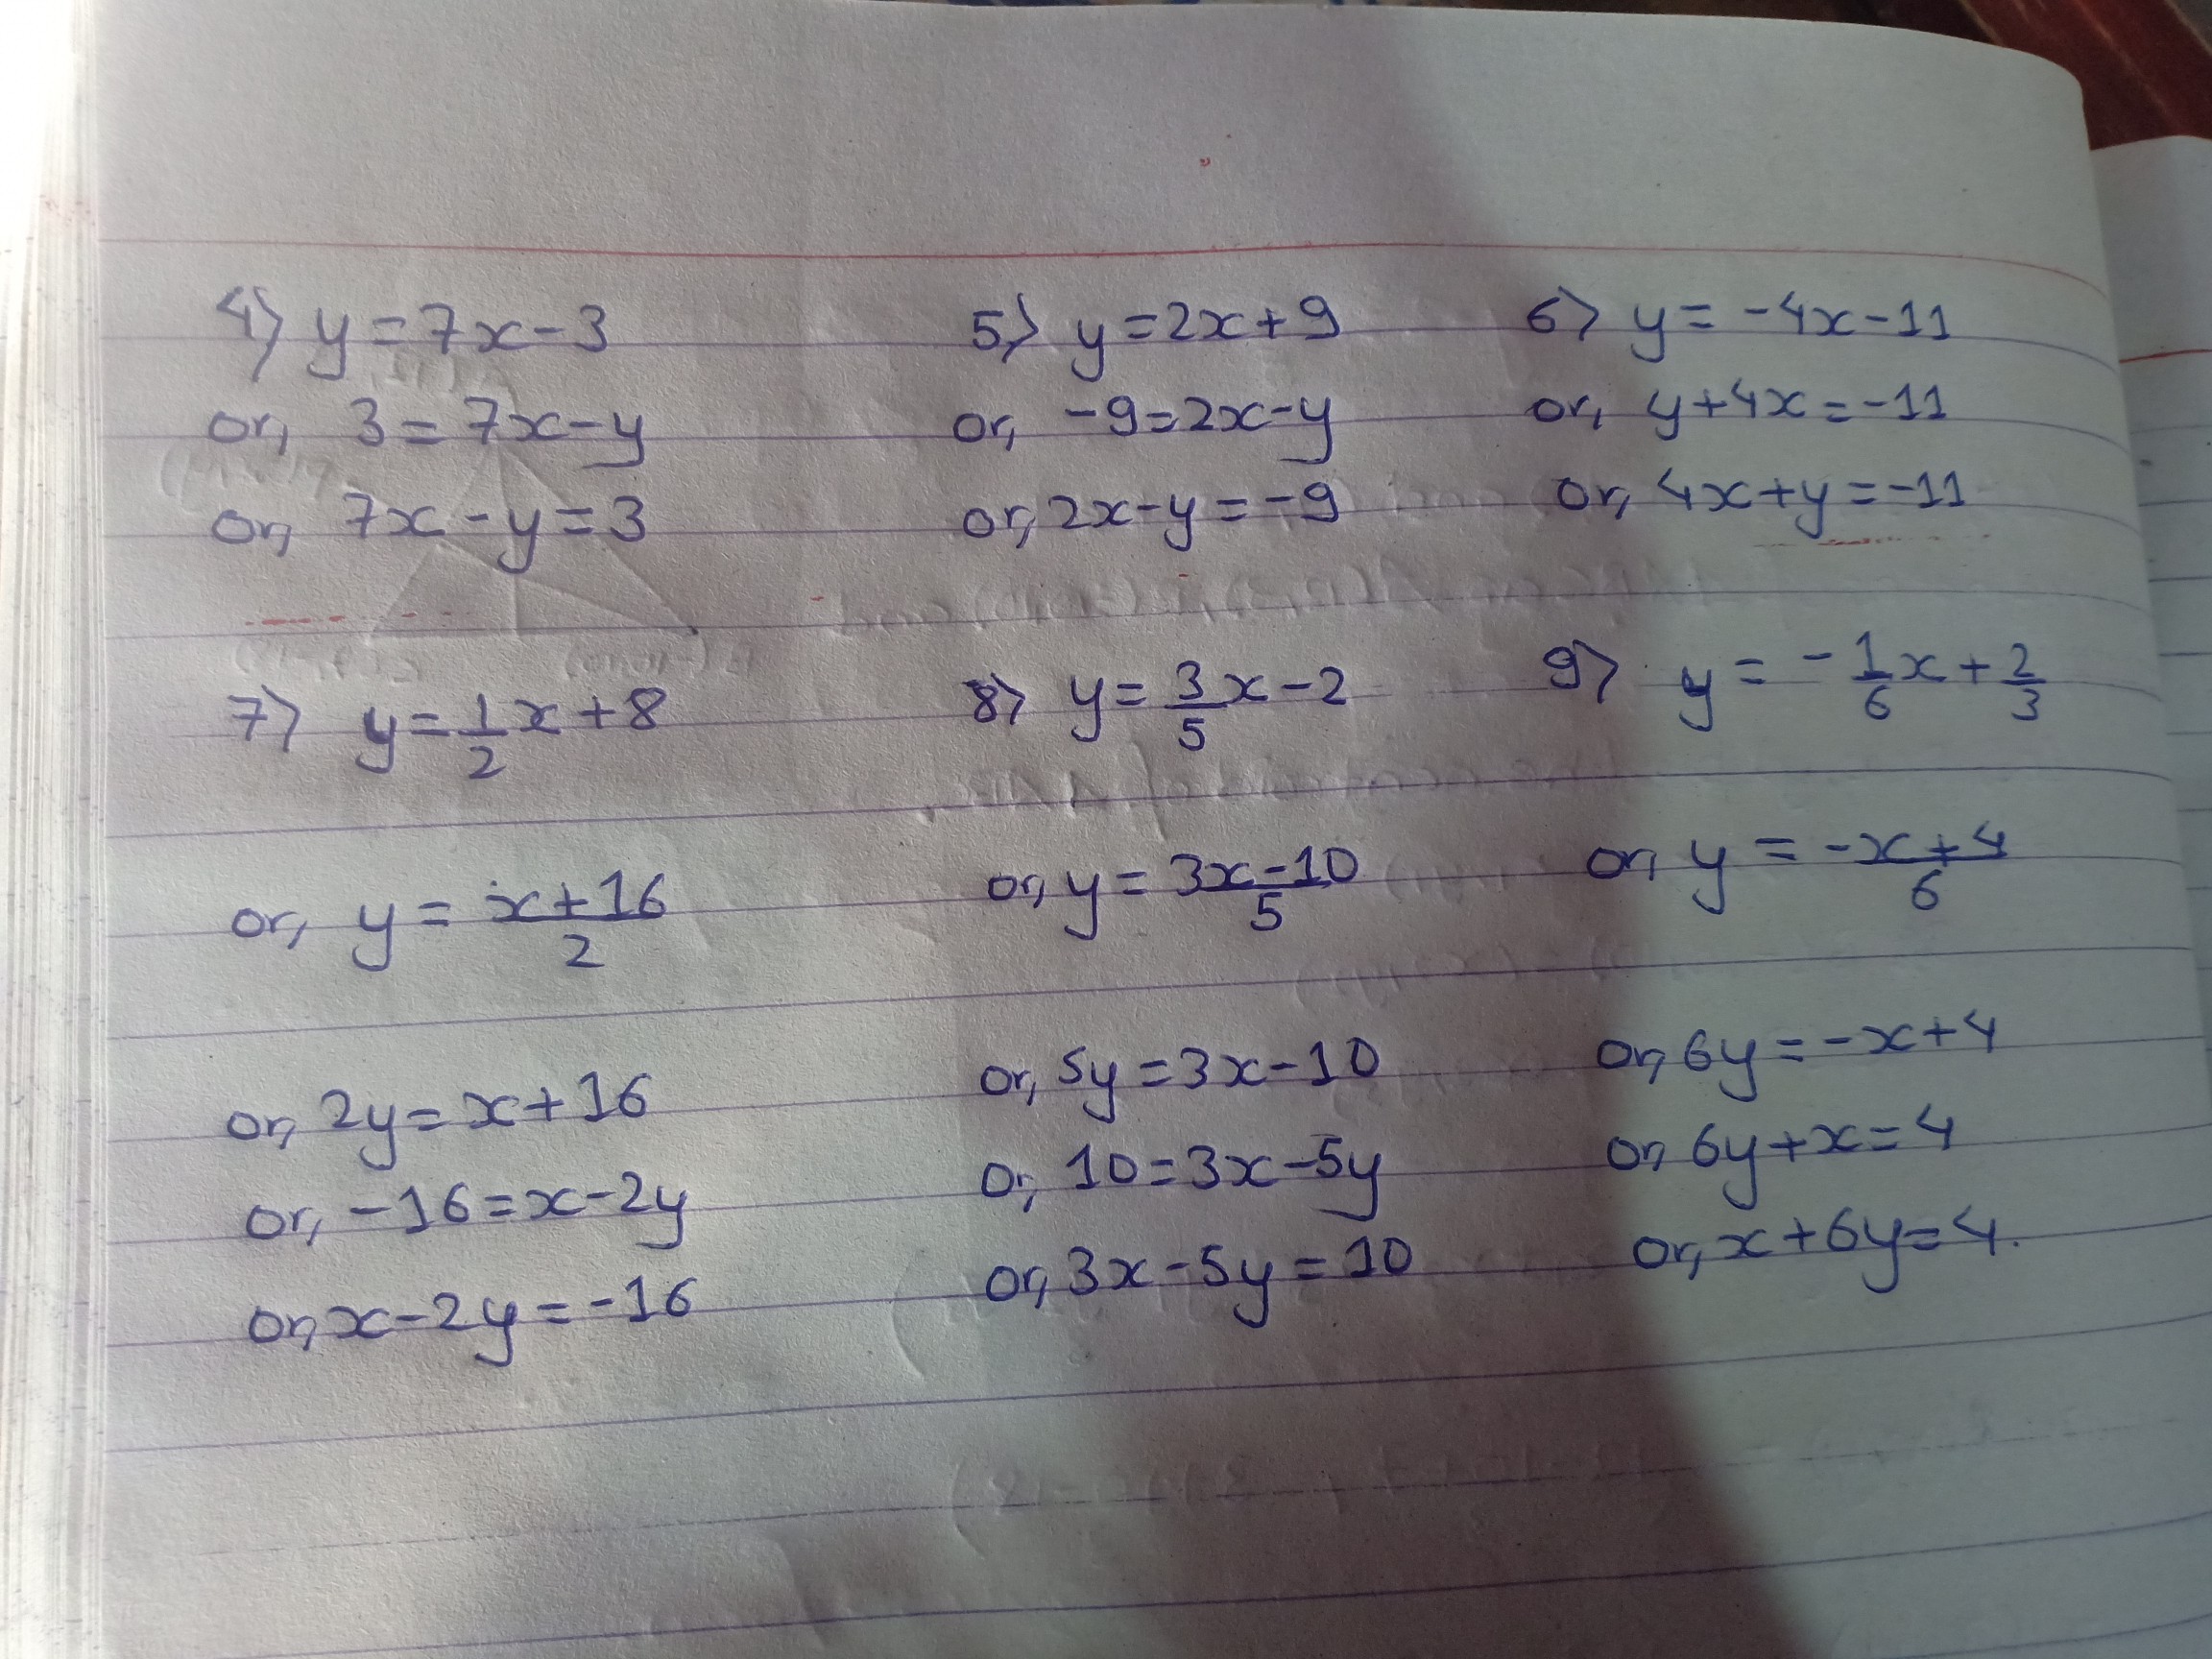 4) y = 7x - 3
or, 3 = 7x - y
or, 7x - y = 3
5) y = 2x + 9
or, -9 = 2x - y
or, 2x - y = -9
6) y = -4x - 11
or, y + 4x = -11
or, 4x + y = -11
7) y = 1/2 x + 8
or, y = x + 16 / 2
or, 2y = x + 16
or, -16 = x - 2y
or, x - 2y = -16
8) y = 3/5 x - 2
or, y = 3x - 10 / 5
or, 5y = 3x - 10
or, 10 = 3x - 5y
or, 3x - 5y = 10
9) y = -1/6 x + 2/3
or, y = -x + 4 / 6
or, 6y = -x + 4
or, 6y + x = 4
or, x + 6y = 4.